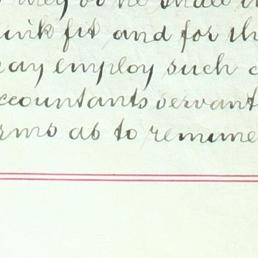 they or he shall
think fit and for th
may employ such
accountants servant
rms as to remune